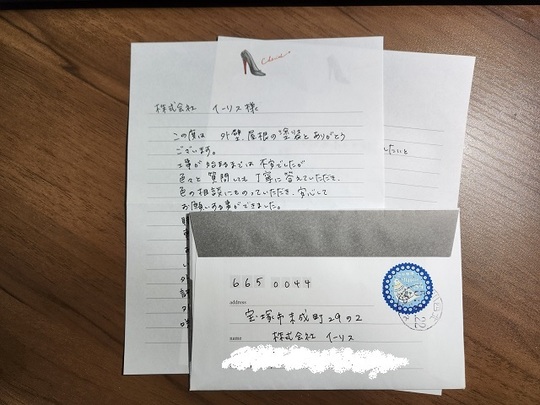 株式会社 イーリス様
この度は 外壁、屋根の塗装とありがとう
ございます。
工事が始まるまでは 不安でしたが
色々と 質問しても 丁寧に答えていただき、
色の相談にものっていただき、安心して
お願いする事ができました。
したいと
665 0044
address
宝塚市末成町29の2
name
株式会社 イーリス